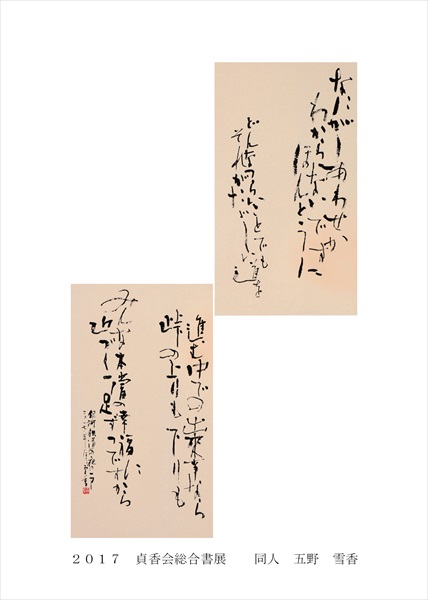 なにがしあわせか
わからないです
ほんとうに
どんなつらいことでも
それがただしい道を
進む中での出来事なら
峠の上りも下りも
みんな本当の幸福に
近づく一足ずつですから
銀河鉄道の夜
2017　貞香会総合書展　　同人　五野　雪香